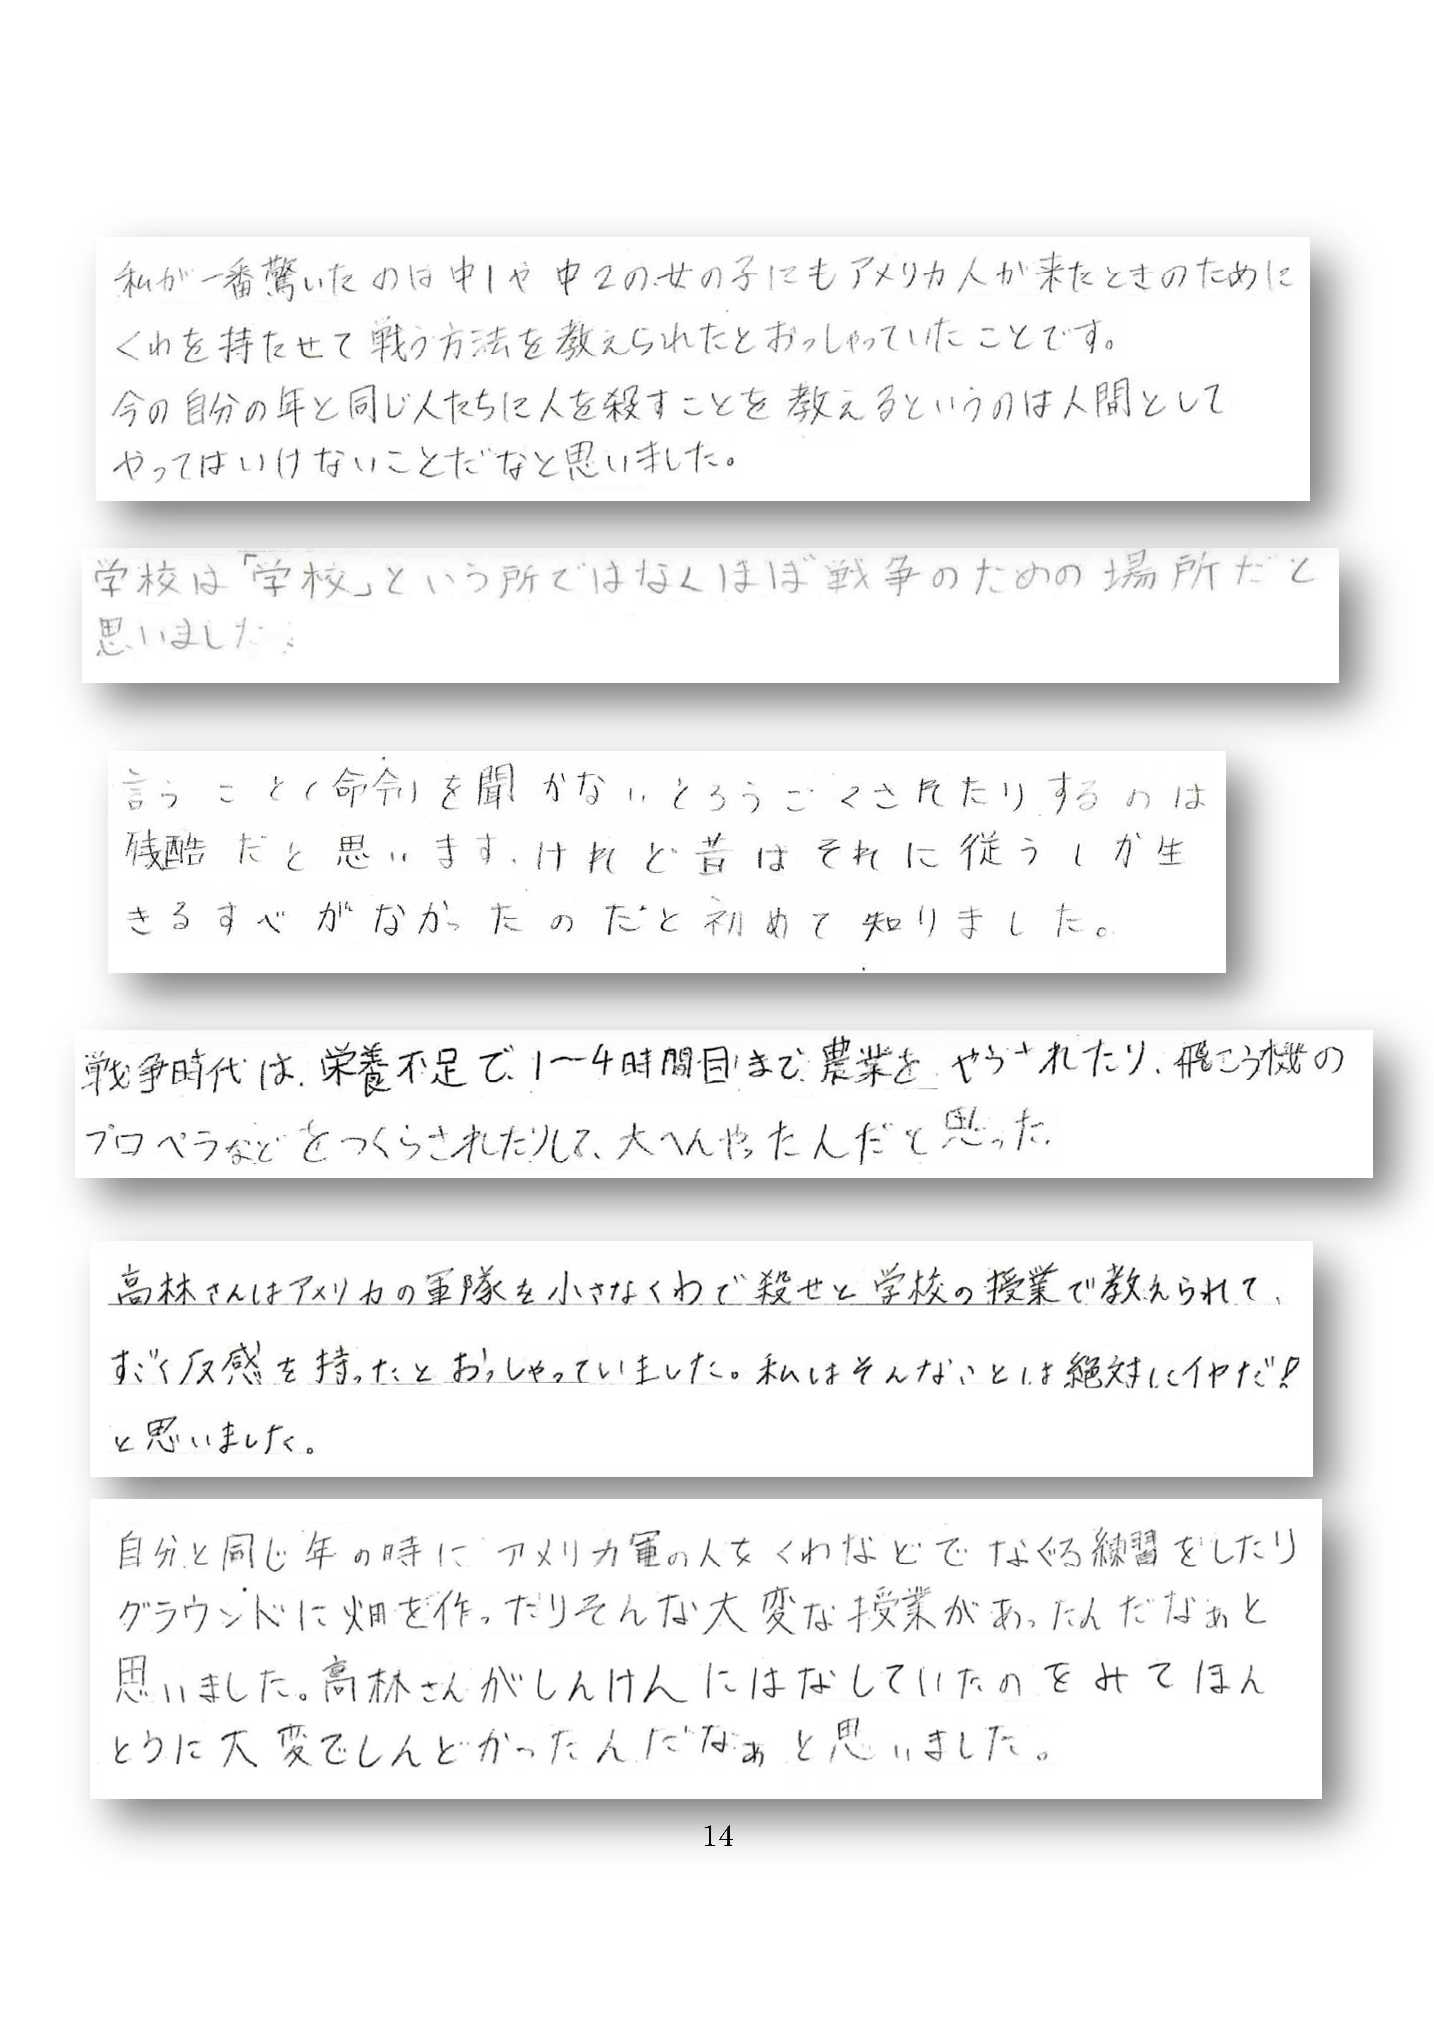 私が一番驚いたのは中1や中2の女の子にもアメリカ人が来たときのために
くわを持たせて戦う方法を教えられたとおっしゃっていたことです。
今の自分の年と同じ人たちに人を殺すことを教えるというのは人間として
やってはいけないことだなと思いました。
学校は「学校」という所ではなくほぼ戦争のための場所だと
思いました。
言うこと(命令)を聞かないとろうごくされたりするのは
残酷だと思います、けれど昔はそれに従うしか生
きるすべがなかったのだと初めて知りました。
戦争時代は、栄養不足で、1〜4時間目まで、農業を、やらされたり、飛こう機の
プロペラなどをつくらされたりして、大へんやったんだと思った、
高林さんはアメリカの軍隊を小さなくわで殺せと学校の授業で教えられて、
すごく反感を持ったとおっしゃっていました。私はそんなことは絶対にイヤだ!
と思いました。
自分と同じ年の時にアメリカ軍の人をくわなどでなぐる練習をしたり
グラウンドに畑を作ったりそんな大変な授業があったんだなぁと
思いました。高林さんがしんけんにはなしていたのをみてほん
とうに大変でしんどかったんだなぁと思いました。
14